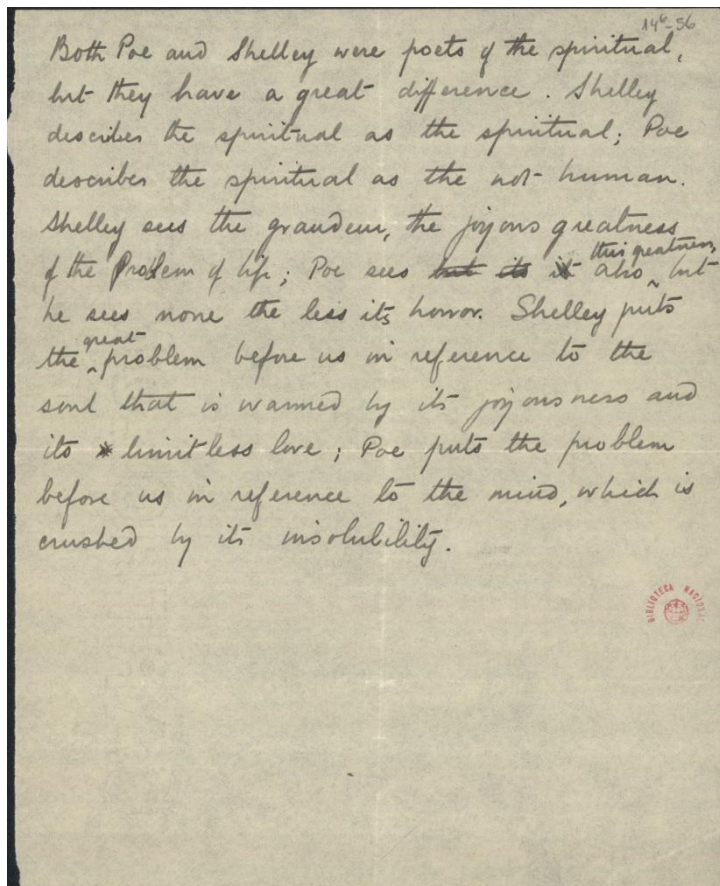 14⁶-56
Both Poe and Shelley were poets of the spiritual,
but they have a great difference. Shelley
describes the spiritual as the spiritual; Poe
describes the spiritual as the not-human.
Shelley sees the grandeur, the joyous greatness
of the Problem of life; Poe sees but its it also this greatness, but
he sees none the less its horror. Shelley puts
the great problem before us in reference to the
soul that is warmed by its joyousness and
its limitless love; Poe puts the problem
before us in reference to the mind, which is
crushed by its insolubility.
BIBLIOTECA NACIONAL